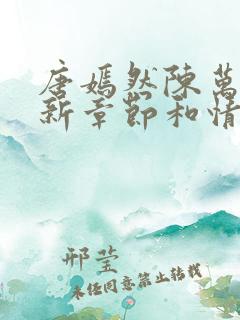 唐嫣然陳萬
新章節和情
邢莹
未经同意禁止转载